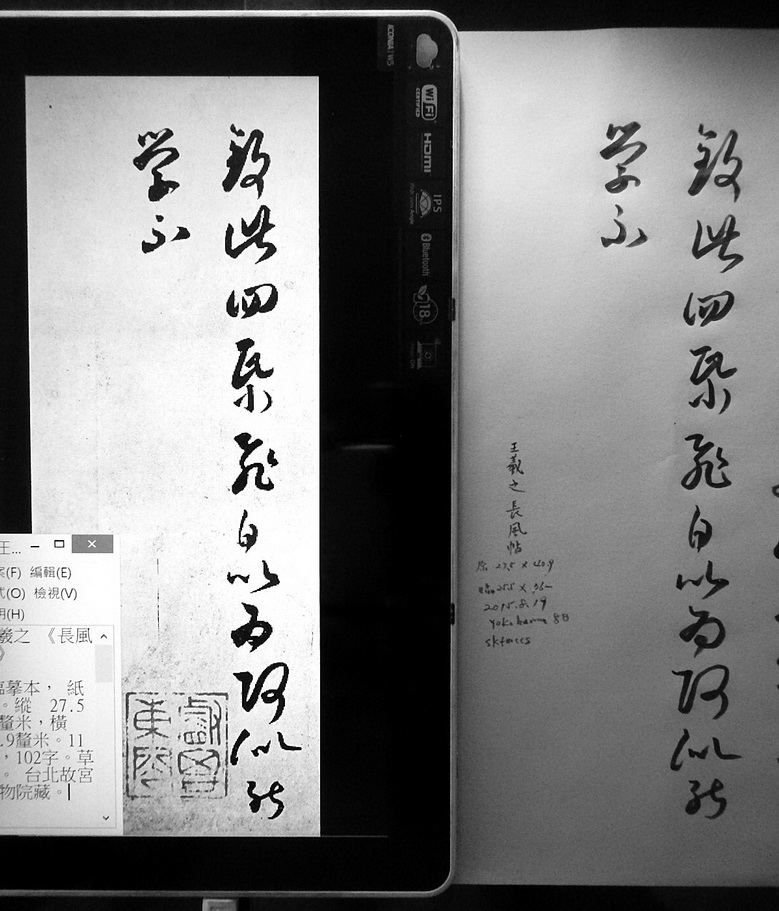 致此四帋飛白以為何似能
学不
ICONIA W5
WiFi
CERTIFIED
HDMI
IPS
Bluetooth
18
王...
案(F) 編輯(E)
式(O) 檢視(V)
明(H)
羲之 《長風
》
臨摹本， 紙
。縱 27.5
釐米，橫
.9釐米。11
，102字。草
。 台北故宮
物院藏。
致此四帋飛白以為何似能
学不
王羲之長風帖
原 27.5 x 40.9
臨 25.5 x 36
2015.8.19
Yokohama 8B